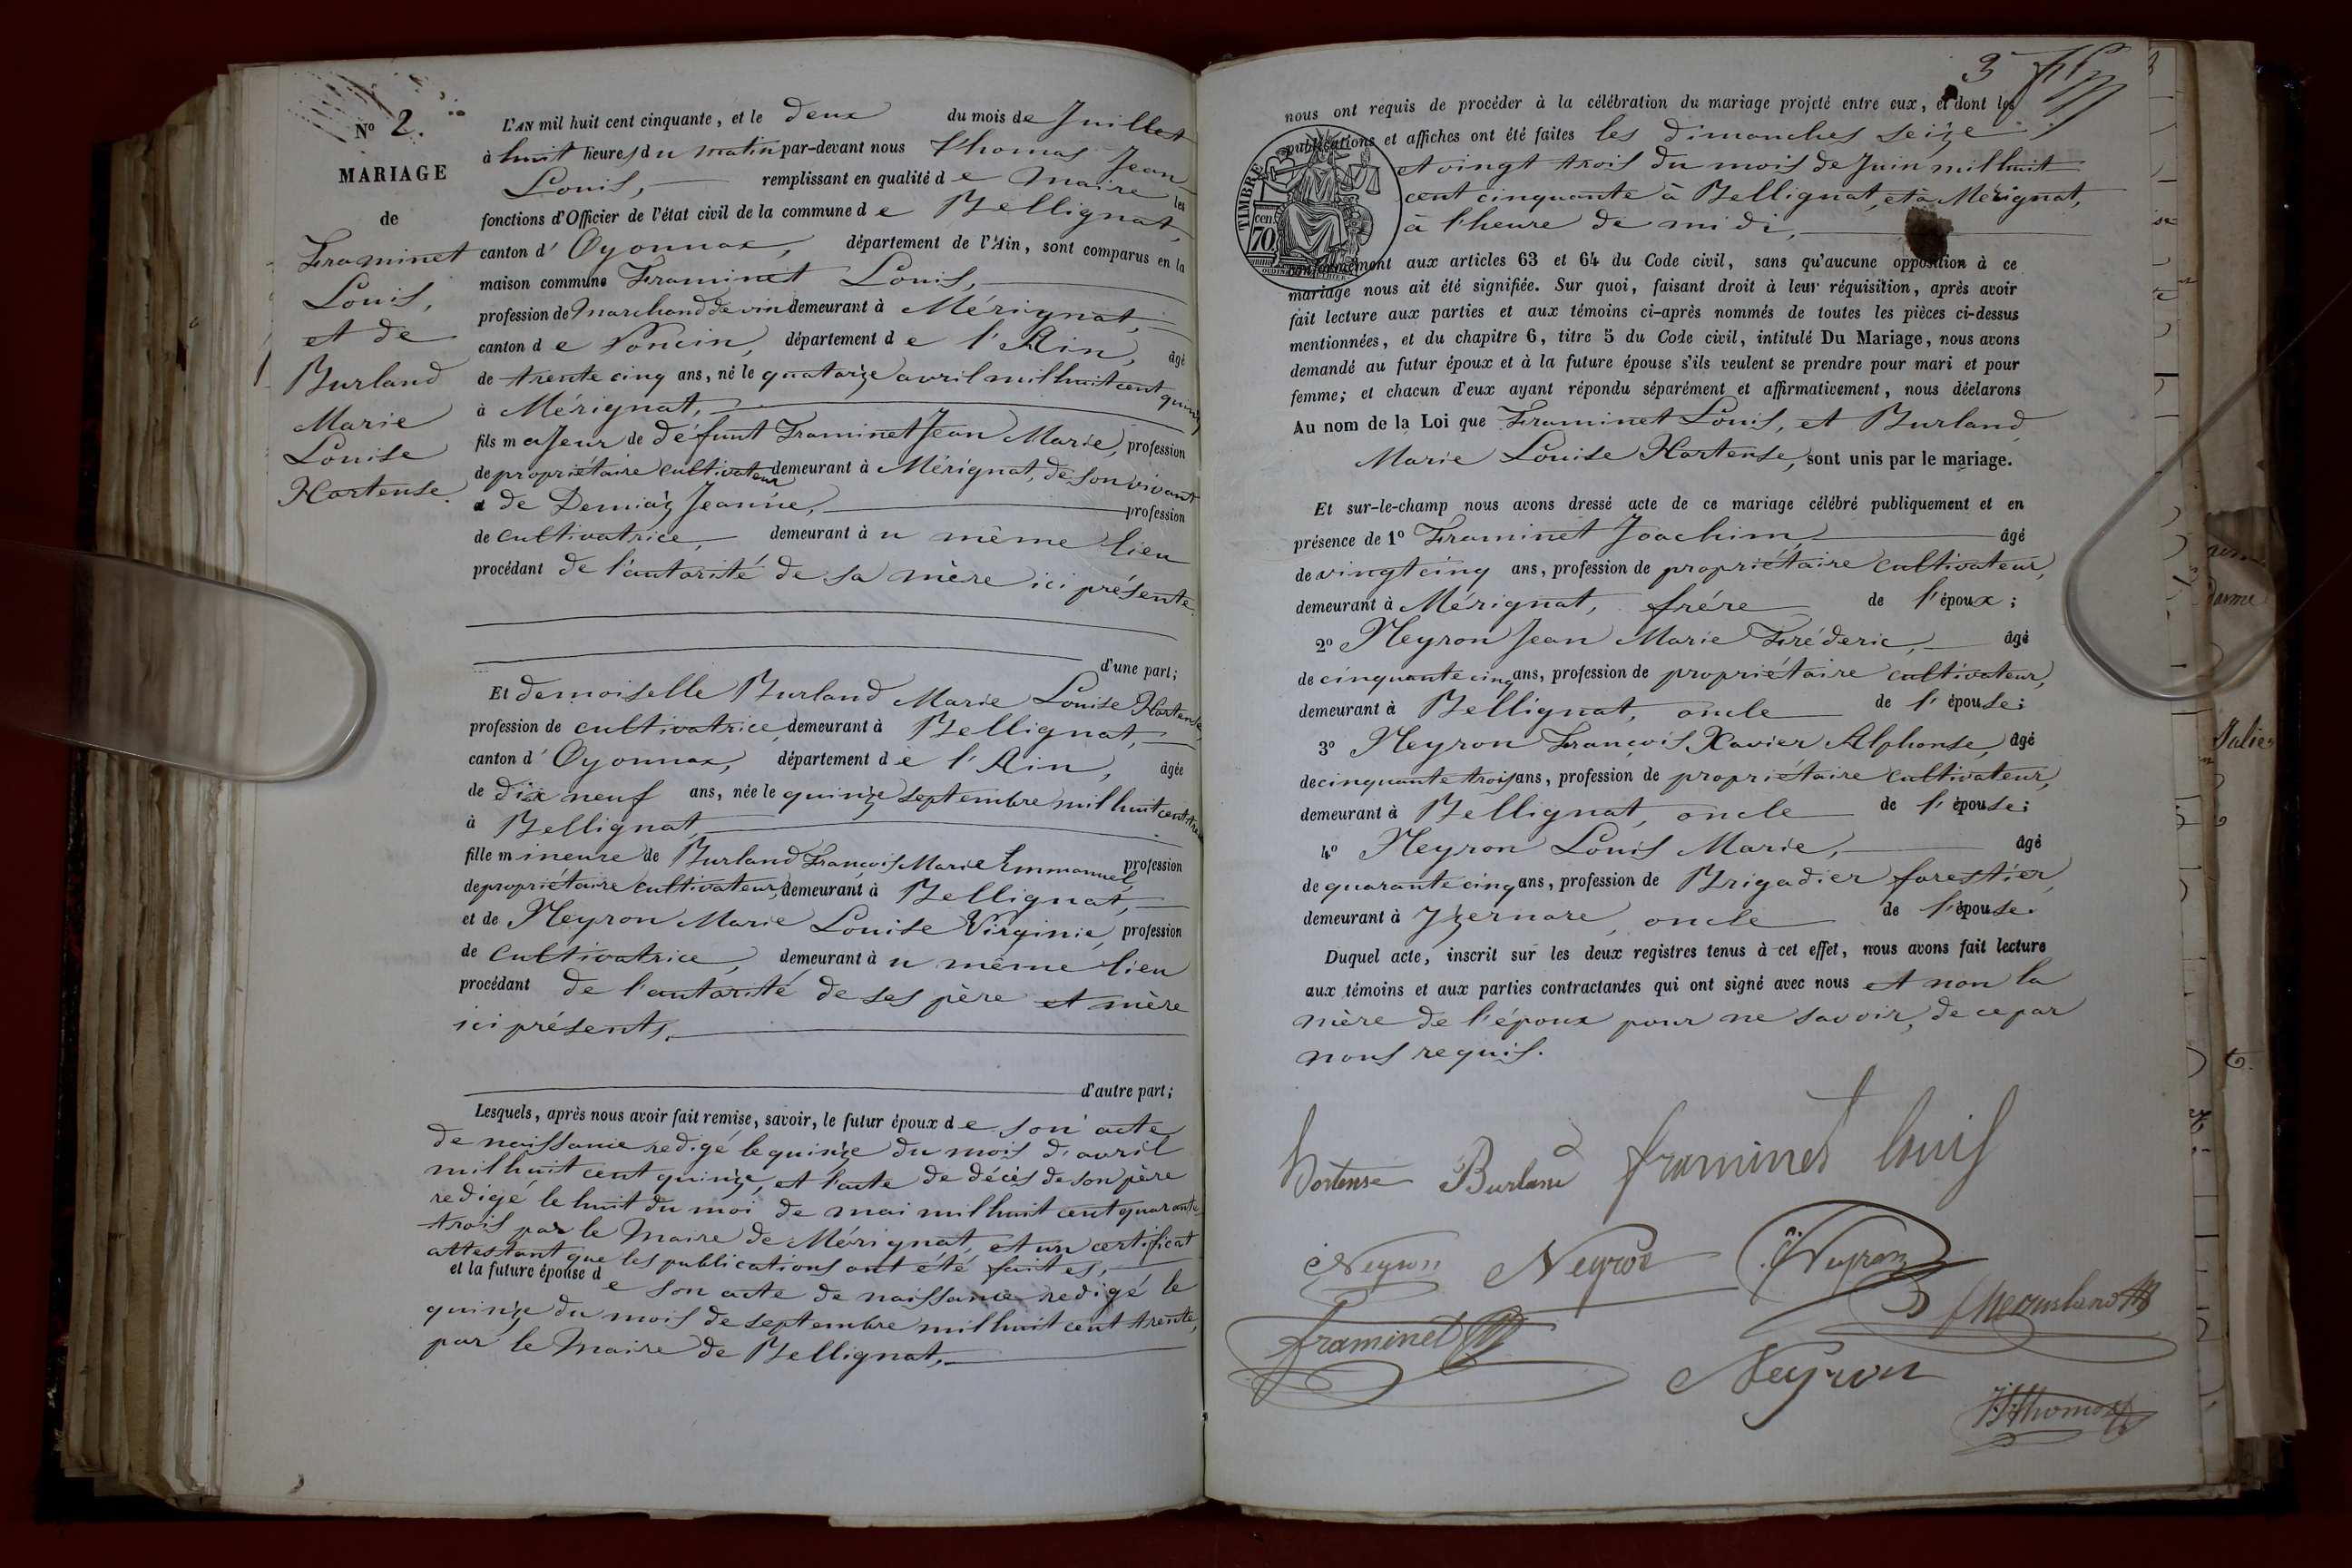 N° 2.
MARIAGE
de
Framinet
Louis,
et de
Burland
Marie
Louise
Hortense.
L'AN mil huit cent cinquante, et le deux du mois de Juillet
à huit heures du matin par-devant nous Thomas Jean
Louis, remplissant en qualité de Maire les
fonctions d'Officier de l'état civil de la commune de Bellignat,
canton d'Oyonnax, département de l'Ain, sont comparus en la
maison commune Framinet Louis,
profession de Marchand de vin demeurant à Mérignat,
canton de Poncin, département de l'Ain, âgé
de trente cinq ans, né le quatorze avril mil huit cent quinze
à Mérignat,
fils majeur de défunt Framinet Jean Marie, profession
de propriétaire cultivateur demeurant à Mérignat, de son vivant
et de Demiaz Jeanne, profession
de cultivatrice, demeurant au même lieu
procédant de l'autorité de sa mère ici présente.
d'une part;
Et demoiselle Burland Marie Louise Hortense,
profession de cultivatrice, demeurant à Bellignat,
canton d'Oyonnax, département de l'Ain, âgée
de dix neuf ans, née le quinze septembre mil huit cent trente
à Bellignat,
fille mineure de Burland François Marie Emmanuel, profession
de propriétaire cultivateur, demeurant à Bellignat,
et de Neyron Marie Louise Virginie, profession
de cultivatrice, demeurant au même lieu
procédant de l'autorité de ses père et mère
ici présents,
d'autre part;
Lesquels, après nous avoir fait remise, savoir, le futur époux de son acte
de naissance redigé le quinze du mois d'avril
mil huit cent quinze, et l'acte de décès de son père
redigé le huit du moi de mai mil huit cent quarante
trois par le Maire de Mérignat, et un certificat
attestant que les publications ont été faites,
et la future épouse de son acte de naissance redigé le
quinze du mois de septembre mil huit cent trente,
par le Maire de Bellignat,
3
nous ont requis de procéder à la célébration du mariage projeté entre eux, et dont les
publications et affiches ont été faites les dimanches seize
et vingt trois du mois de Juin mil huit
cent cinquante à Bellignat, et à Mérignat,
à l'heure de midi,
TIMBRE
cen.
70
conformément aux articles 63 et 64 du Code civil, sans qu'aucune opposition à ce
mariage nous ait été signifiée. Sur quoi, faisant droit à leur réquisition, après avoir
fait lecture aux parties et aux témoins ci-après nommés de toutes les pièces ci-dessus
mentionnées, et du chapitre 6, titre 5 du Code civil, intitulé Du Mariage, nous avons
demandé au futur époux et à la future épouse s'ils veulent se prendre pour mari et pour
femme; et chacun d'eux ayant répondu séparément et affirmativement, nous déclarons
Au nom de la Loi que Framinet Louis, et Burland
Marie Louise Hortense, sont unis par le mariage.
Et sur-le-champ nous avons dressé acte de ce mariage célébré publiquement et en
présence de 1° Framinet Joachim, âgé
de vingt cinq ans, profession de propriétaire cultivateur,
demeurant à Mérignat, frére de l'époux;
2° Neyron Jean Marie Fréderic, âgé
de cinquante cinq ans, profession de propriétaire cultivateur,
demeurant à Bellignat, oncle de l'épouse;
3° Neyron François Xavier Alphonse, âgé
de cinquante trois ans, profession de propriétaire cultivateur,
demeurant à Bellignat, oncle de l'épouse;
4° Neyron Louis Marie, âgé
de quarante cinq ans, profession de Brigadier forestier,
demeurant à Yzernore, oncle de l'épouse.
Duquel acte, inscrit sur les deux registres tenus à cet effet, nous avons fait lecture
aux témoins et aux parties contractantes qui ont signé avec nous et non la
mère de l'époux pour ne savoir, de ce par
nous requis.
hortense Burland framinet louis
Neyron Neyron Neyron
framinet
Neyron
JLThomas
Julie